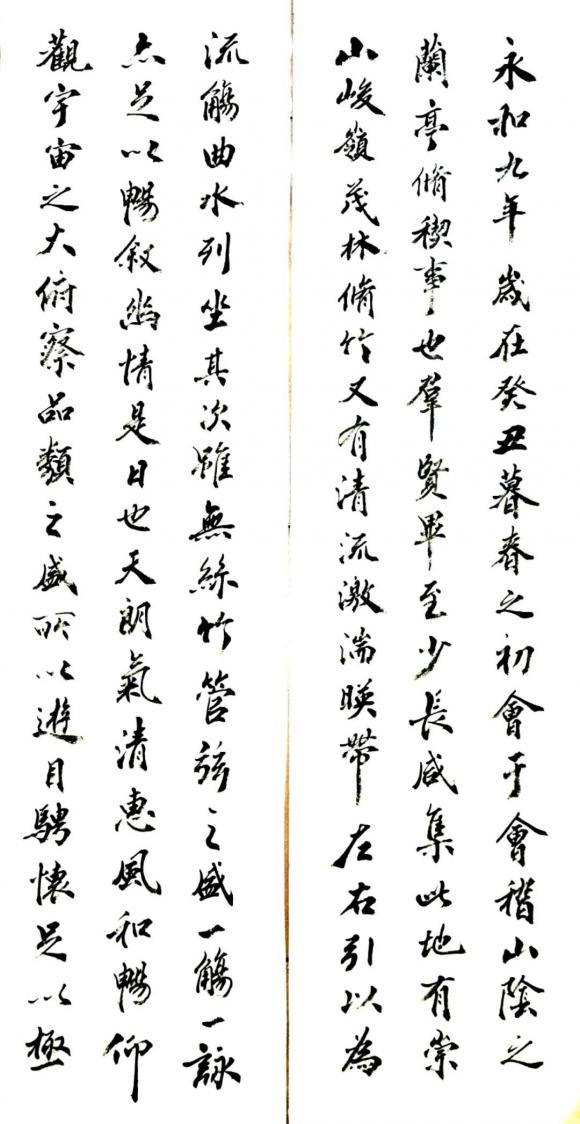 永和九年歲在癸丑暮春之初會于會稽山陰之
蘭亭脩稧事也羣賢畢至少長咸集此地有崇
山峻嶺茂林脩竹又有清流激湍暎帶左右引以為
流觴曲水列坐其次雖無絲竹管弦之盛一觴一詠
亦足以暢敘幽情是日也天朗氣清惠風和暢仰
觀宇宙之大俯察品類之盛所以遊目騁懷足以極